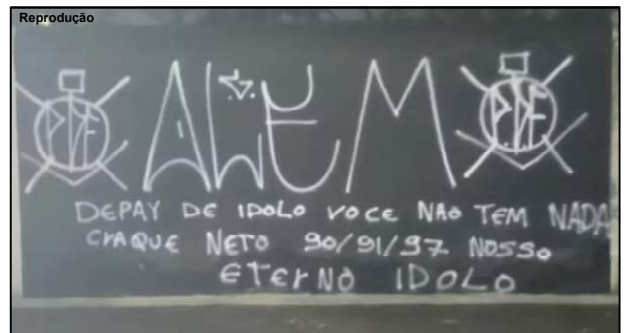 Reprodução
PDF ALEM PDF
DEPAY DE IDOLO VOCE NAO TEM NADA
CRAQUE NETO 90/91/97 NOSSO
ETERNO IDOLO